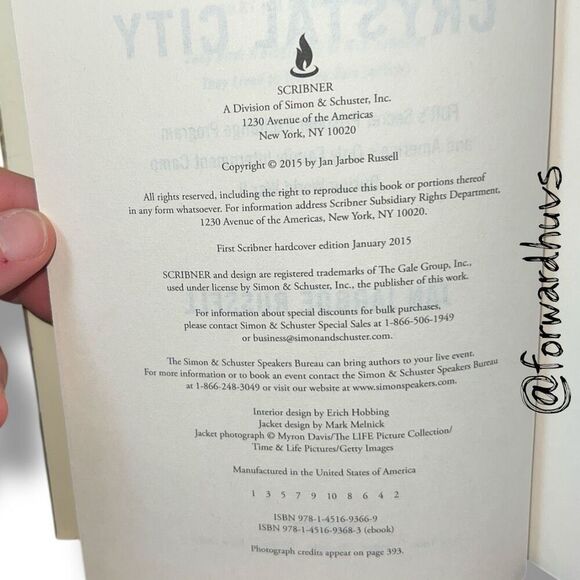 SCRIBNER
A Division of Simon & Schuster, Inc.
1230 Avenue of the Americas
New York, NY 10020
Copyright © 2015 by Jan Jarboe Russell
All rights reserved, including the right to reproduce this book or portions thereof
in any form whatsoever. For information address Scribner Subsidiary Rights Department,
1230 Avenue of the Americas, New York, NY 10020.
First Scribner hardcover edition January 2015
SCRIBNER and design are registered trademarks of The Gale Group, Inc.,
used under license by Simon & Schuster, Inc., the publisher of this work.
For information about special discounts for bulk purchases,
please contact Simon & Schuster Special Sales at 1-866-506-1949
or business@simonandschuster.com.
The Simon & Schuster Speakers Bureau can bring authors to your live event.
For more information or to book an event contact the Simon & Schuster Speakers Bureau
at 1-866-248-3049 or visit our website at www.simonspeakers.com.
Interior design by Erich Hobbing
Jacket design by Mark Melnick
Jacket photograph © Myron Davis/The LIFE Picture Collection/
Time & Life Pictures/Getty Images
Manufactured in the United States of America
1 3 5 7 9 10 8 6 4 2
ISBN 978-1-4516-9366-9
ISBN 978-1-4516-9368-3 (ebook)
Photograph credits appear on page 393.
@forwardhuvs
CRYSTAL CITY